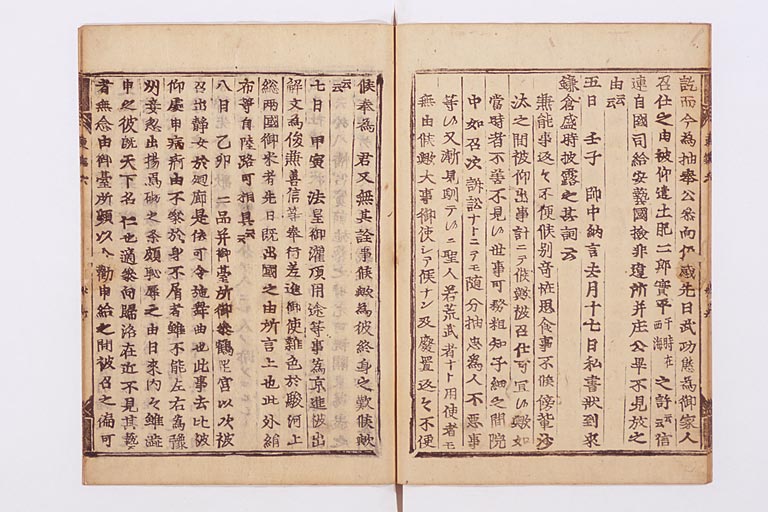 訖而今為抽奉公忩向伇感先日武功慭為御家人
召仕之由被仰遣土肥二郎實平于時在西海之許云云信
連自國司給安藝國撿非違所并庄公畢不見放之
由云云
五日 壬子 師中納言去月十七日私書狀到來
鎌倉盛時披露之其詞云
無能事返々不便候別音恠思食事不候傍輩沙
汰之間被仰出事計ニテ候歟被召仕可宜い歟如
當時者不善不見い世事可務粗知子細之間院
中如召次訴訟ナトニテモ隨分抽忠為人不惡事
等い又漸見馴テいニ聖人若荒武者ナトト用使者モ
無由候歟大事御使シテ候ナン及廢置返々不便
候奉為君又無其詮事候歟為彼終身之歎候歟
云云
七日 甲寅 法皇御灌頂用途等事為京進被出
解文為俊兼善信等奉行差進御使雜色於駿河上
総両國御米者先日既出國之由所言上也此外絹
布等自陸路可相具云云
八日 乙卯 二品并御臺所御參鶴岳宮以次被
召出靜女於廻廊是依可令施舞曲也此事去比被
仰處申病痾由不參於身不屑者雖不能左右為豫
州妾忩出揚焉砌之条頗耻辱之由日來内々雖澁
申之彼既天下名仁也適參向歸洛在近不見其藝
者無念由御臺所頻以令勸申給之間被召之偏可